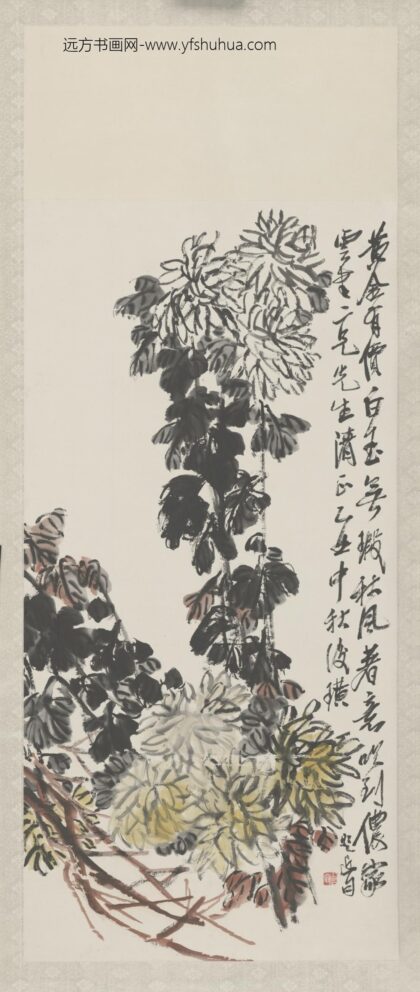 远方书画网-www.yfshuhua.com
黄金有價白玉無瑕秋风著意吹到儂家
雲書二兄先生清正乙丑中秋後璜